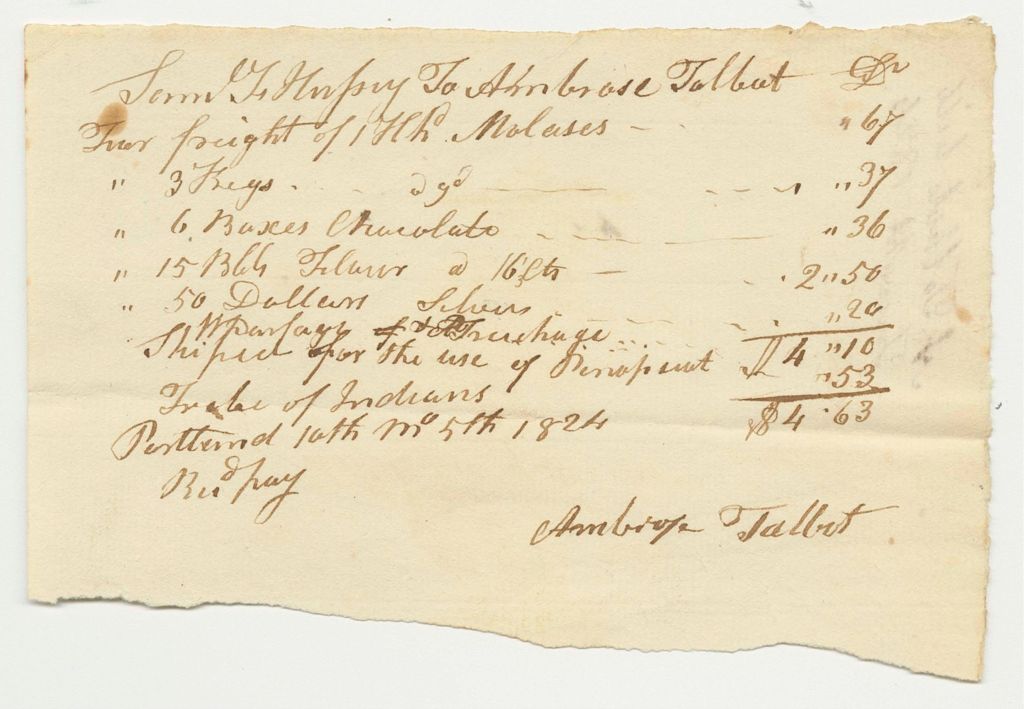 Samˡ F Hussey To Ambrose Talbut Dr
Fuor freight of 1 Hhᵈ Molases - - " 67
" 3 Kegs - - - " 37
" 6 Boxes Chocolate - - - " 36
" 15 Bbls Flower a 16⅔ cts - 2 " 50
" 50 Dollars Silver - - " 20
$4 " 10
Wharfage & Truckage ... " 53
Shiped for the use of Penopscut
Trabe of Indians $4 . 63
Portland 10th Mᵒ 5th 1824
Recᵈ pay
Ambrose Talbot